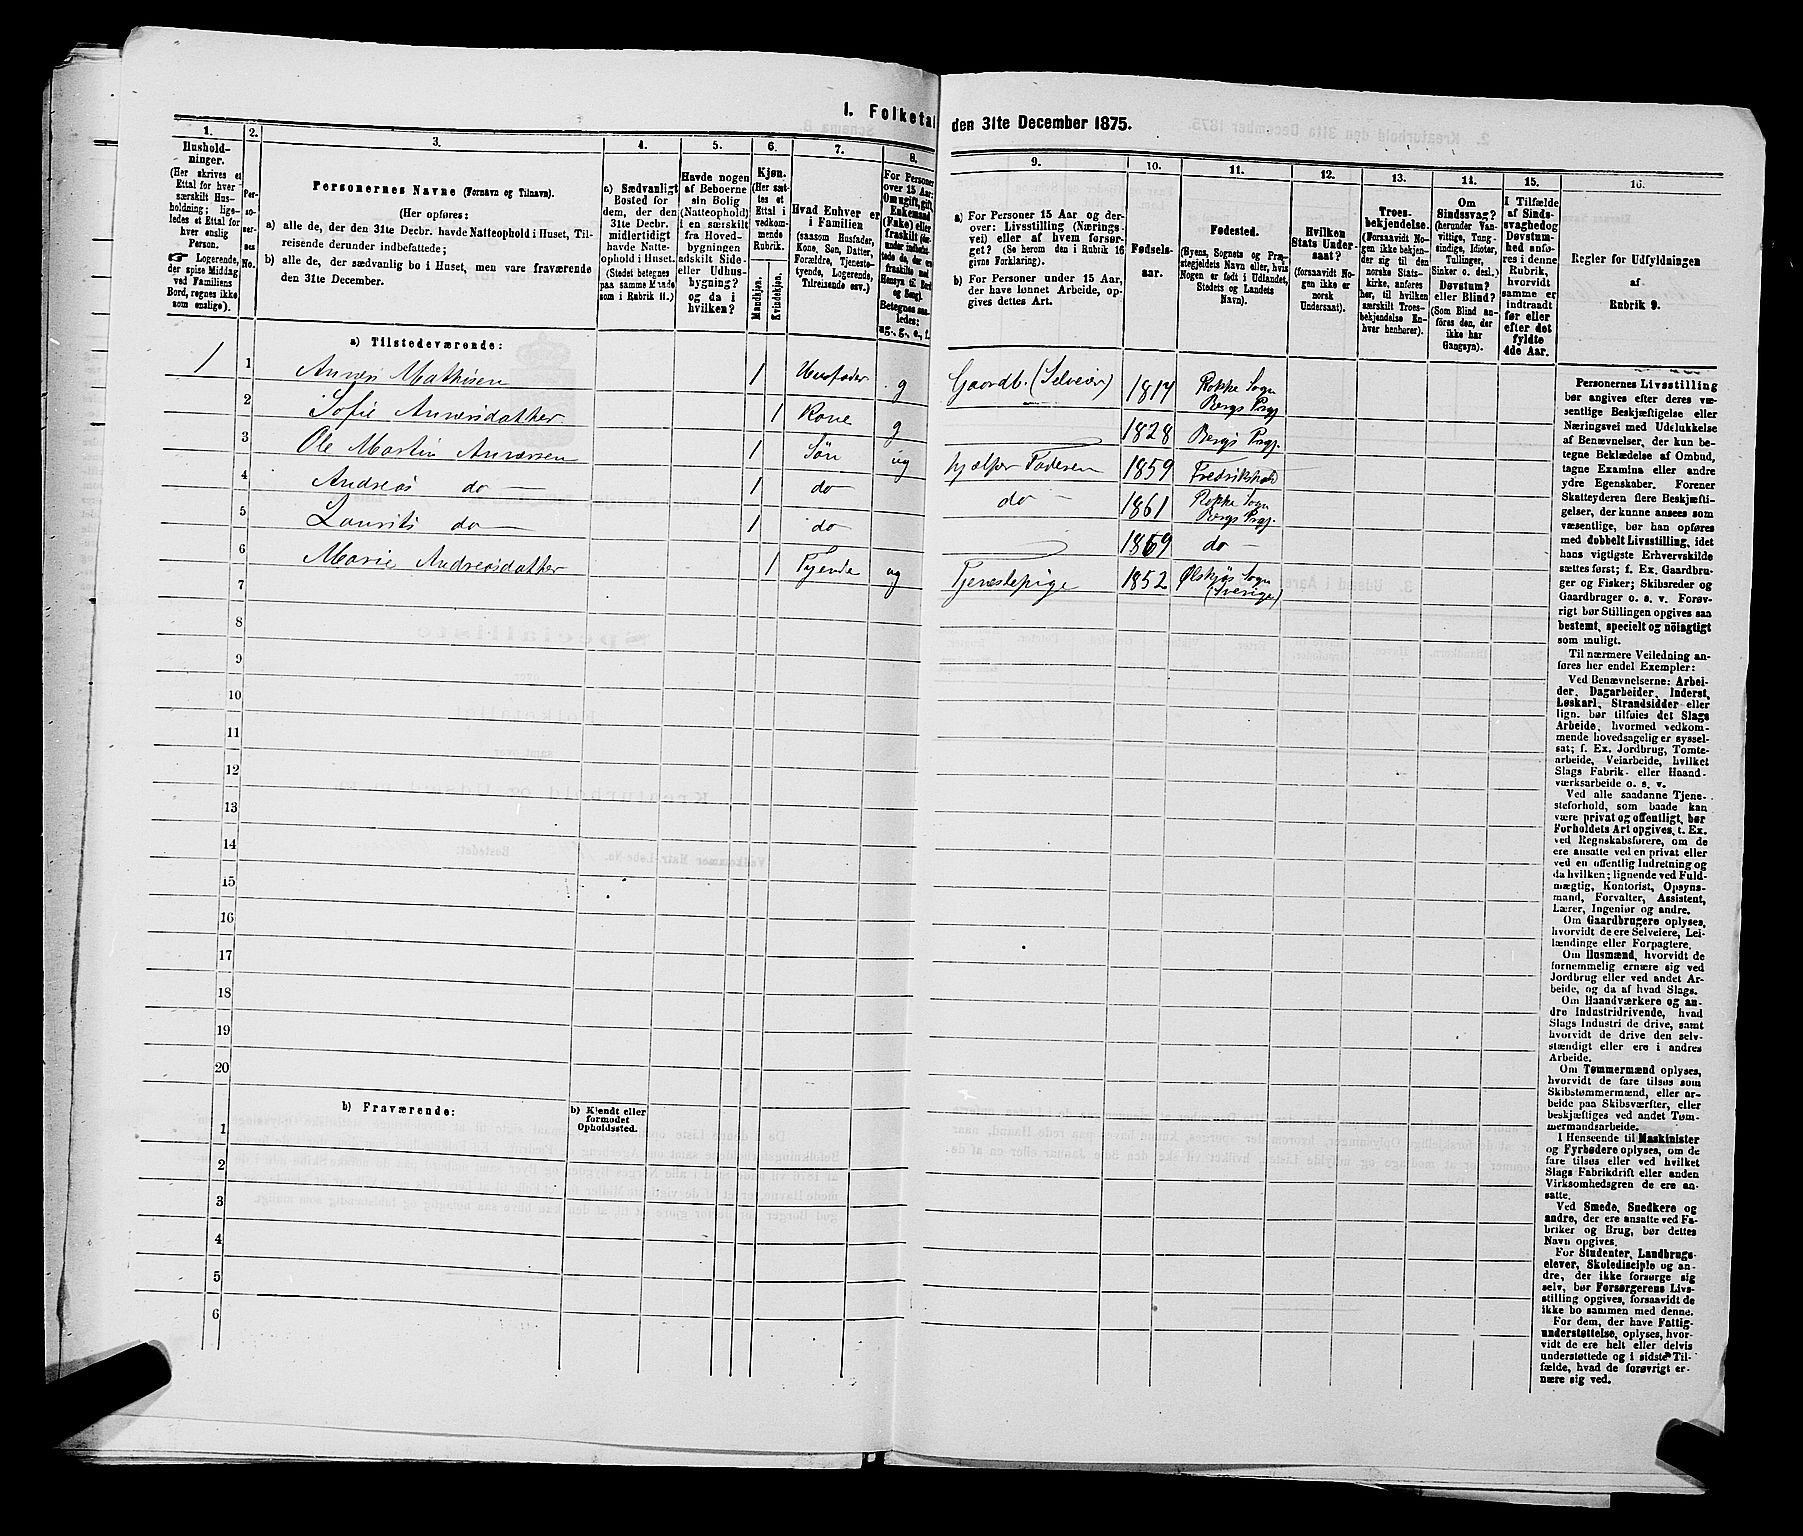 I. Folketal
den 31te December 1875.
1.
Hushold-
ninger.
(Her skrives et
Ettal for hver
særskilt Hus-
holdning; lige-
ledes et Ettal for
hver enslig
Person.
☞ Logerende,
der spise Middag
ved Familiens
Bord, regnes ikke
som enslige).
2.
Per-
so-
ner-
nes
No.
3.
Personernes Navne (Fornavn og Tilnavn).
(Her opføres:
a) alle de, der den 31te Decbr. havde Natteophold i Huset, Til-
reisende derunder indbefattede;
b) alle de, der sædvanlig bo i Huset, men vare fraværende
den 31te December.
4.
a) Sædvanligt
Bosted for
dem, der den
31te Decbr.
midlertidigt
havde Natte-
ophold i Huset.
(Stedet betegnes
paa samme Maade
som i Rubrik 11.)
5.
Havde nogen
af Beboerne
sin Bolig
(Natteophold)
i en særskilt
fra Hoved-
bygningen
adskilt Side-
eller Udhus-
bygning?
og da i
hvilken?
6.
Kjøn.
(Her sæt-
tes et
Ettal i
vedkom-
mende
Rubrik.
Mandkjøn.
Kvindekjøn.
7.
Hvad Enhver er
i Familien
(saasom Husfader,
Kone, Søn, Datter,
Forældre, Tjeneste-
tyende, Logerende,
Tilreisende osv.)
8.
For Personer
over 15 Aar:
Om ugift, gift,
Enkemand
(Enke) eller
fraskilt
Betegnes saa-
ledes:
ug., g., e., f.
9.
a) For Personer 15 Aar og der-
over: Livsstilling (Nærings-
vei) eller af hvem forsør-
get? (Se herom den i Rubrik 16
givne Forklaring).
b) For Personer under 15 Aar,
der have lønnet Arbeide, op-
gives dettes Art.
10.
Fødsels-
aar.
11.
Fødested.
(Byens, Sognets og Præ-
stegjeldets Navn eller, hvis
Nogen er født i Udlandet,
Stedets og Landets
Navn).
12.
Hvilken
Stats Under-
saat?
(forsaavidt No-
gen ikke er
norsk
Undersaat).
13.
Troes-
bekjendelse.
(Forsaavidt No-
gen ikke bekjen-
der sig til den
norske Stats-
kirke, anføres
her, til hvilken
særskilt Troes-
bekjendelse En-
hver henhører).
14.
Om
Sindssvag?
(herunder Van-
vittige, Tung-
sindige, Idioter,
Tullinger,
Sinker o. desl.)
Døvstum?
eller Blind?
(Som Blind an-
føres den, der
ikke har
Gangsyn).
15.
I Tilfælde
af Sinds-
svaghed og
Døvstum-
hed anfø-
res i denne
Rubrik,
hvorvidt
samme er
indtraadt
før eller
efter det
fyldte
4de Aar.
16.
Regler for Udfyldningen
af
Rubrik 9.
a) Tilstedeværende:
1 1 Anners Mathisen 1 Husfader g Gaardb. (Selveier) 1817 Rokke Sogn
Bergs Prgj.
2 Sofie Annersdatter 1 Kone g 1828 Bergs Prgj.
3 Ole Martin Annersen 1 Søn ug hjælper Faderen 1859 Fredrikshald
4 Andreas do — 1 do do — 1861 Rokke Sogn
Bergs Prgj.
5 Laurits do — 1 do 1869 do —
6 Marie Andreasdatter 1 Tyende ug Tjenestepige 1852 Sogn
(Sverige)
7
8
9
10
11
12
13
14
15
16
17
18
19
20
b) Fraværende:
b) Kjendt eller
formodet
Opholdssted.
1
2
3
4
5
6
Personernes Livsstilling
bør angives efter deres væ-
sentlige Beskjæftigelse eller
Næringsvei med Udelukkelse
af Benævnelser, der kun be-
tegne Beklædelse af Ombud,
tagne Examina eller andre
ydre Egenskaber. Forener
Skatteyderen flere Beskjæfti-
gelser, der kunne ansees som
væsentlige, bør han opføres
med dobbelt Livsstilling, idet
hans vigtigste Erhvervskilde
sættes først; f. Ex. Gaardbru-
ger og Fisker; Skibsreder og
Gaardbruger o. s. v. Forøv-
rigt bør Stillingen opgives saa
bestemt, specielt og nøiagtigt
som muligt.
Til nærmere Veiledning an-
føres her endel Exempler:
Ved Benævnelserne: Arbei-
der, Dagarbeider, Inderst,
Løskarl, Strandsidder eller
lign. bør tilføies det Slags
Arbeide, hvormed vedkom-
mende hovedsagelig er syssel-
sat; f. Ex. Jordbrug, Tomte-
arbeide, Veiarbeide, hvilket
Slags Fabrik- eller Haand-
værksarbeide o. s. v.
Ved alle saadanne Tjene-
steforhold, som baade kan
være privat og offentligt, bør
Forholdets Art opgives, t. Ex.
ved Regnskabsførere, om de
ere ansatte ved en privat eller
ved en offentlig Indretning og
da hvilken; lignende ved Fuld-
mægtig, Kontorist, Opsyns-
mand, Forvalter, Assistent,
Lærer, Ingeniør og andre.
Om Gaardbrugere oplyses,
hvorvidt de ere Selveiere, Lei-
lændinge eller Forpagtere.
Om Husmænd, hvorvidt de
fornemmelig ernære sig ved
Jordbrug eller ved andet Ar-
beide, og da af hvad Slags.
Om Haandværkere og an-
dre Industridrivende, hvad
Slags Industri de drive, samt
hvorvidt de drive den selv-
stændigt eller ere i andres
Arbeide.
Om Tømmermænd oplyses,
hvorvidt de fare tilsøs som
Skibstømmermænd, eller ar-
beide paa Skibsværfter, eller
beskjæftiges ved andet Tøm-
mermandsarbeide.
I Henseende til Maskinister
og Fyrbødere oplyses, om de
fare tilsøs eller ved hvilket
Slags Fabrikdrift eller anden
Virksomhedsgren de ere an-
satte.
Ved Smede, Snedkere og
andre, der ere ansatte ved Fa-
briker og Brug, bør dettes
Navn opgives.
For Studenter, Landbrugs-
elever, Skoledisciple og an-
dre, der ikke forsørge sig
selv, bør Forsørgerens Livs-
stilling opgives, forsaavidt de
ikke bo sammen med denne.
For dem, der have Fattig-
understøttelse, oplyses, hvor-
vidt de ere helt eller delvis
understøttede og i sidste Til-
fælde, hvad de forøvrigt er-
nære sig ved.